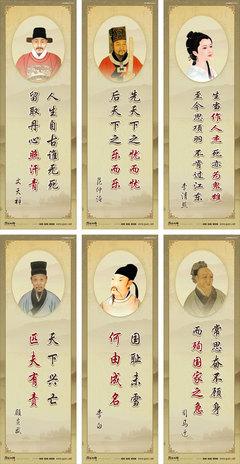 人生自古谁无死
留取丹心照汗青
文天祥
先天下之忧而忧
后天下之乐而乐
范仲淹
生当作人杰 死亦为鬼雄
至今思项羽 不肯过江东
李清照
天下兴亡
匹夫有责
顾炎武
国耻未雪
何由成名
李白
常思奋不顾身
而殉国家之急
司马迁